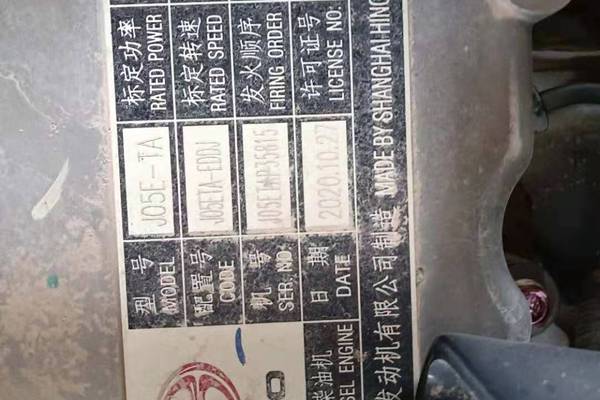 柴油机
SEL ENGINE
型号
MODEL
J05E-TA
标定功率
RATED POWER
配置号
CODE
J05ETA-EDDJ
标定转速
RATED SPEED
机号
SER.NO.
发火顺序
FIRING ORDER
日期
DATE
2020.10.27
许可证号
LICENSE NO.
发动机有限公司制造 MADE BY SHANGHAI HINO